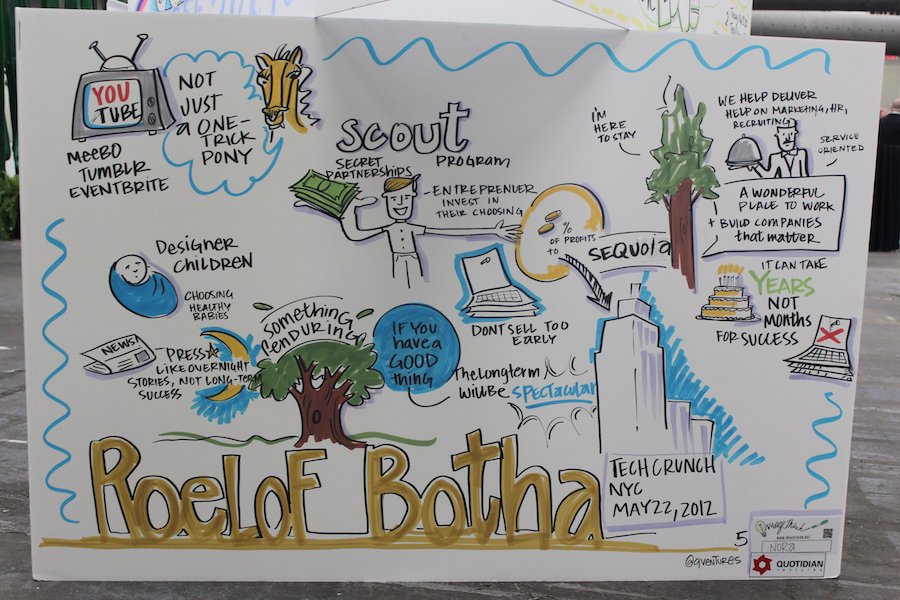 YOU
TUBE
MEEBO
TUMBLR
EVENTBRITE
NOT
JUST
a ONE-
TRICK
PONY
SCOUT
PROGRAM
SECRET
PARTNERSHIPS
- ENTREPRENUER
INVEST IN
THEIR CHOOSING
%
OF PROFITS
TO
SEQUOIA
I'M
HERE
TO STAY
WE HELP DELIVER
HELP ON MARKETING, HR,
RECRUITING
SERVICE
ORIENTED
A WONDERFUL
PLACE TO WORK
+ BUILD COMPANIES
that matter
IT CAN TAKE
YEARS
NOT
MONTHS
FOR SUCCESS
DESIGNER
CHILDREN
CHOOSING
HEALTHY
BABIES
NEWS!
PRESS
LIKE OVERNIGHT
STORIES, NOT LONG-TERM
SUCCESS
SOMETHING
ENDURING
IF YOU
have a
GOOD
thing
DON'T SELL TOO
EARLY
The Longterm
will Be SPECTACULAR
Roelof Botha
TECHCRUNCH
NYC
MAY 22, 2012
5
@qventures
ImageThink
WWW.IMAGETHINK.NET
NORA
QUOTIDIAN
VENTURES